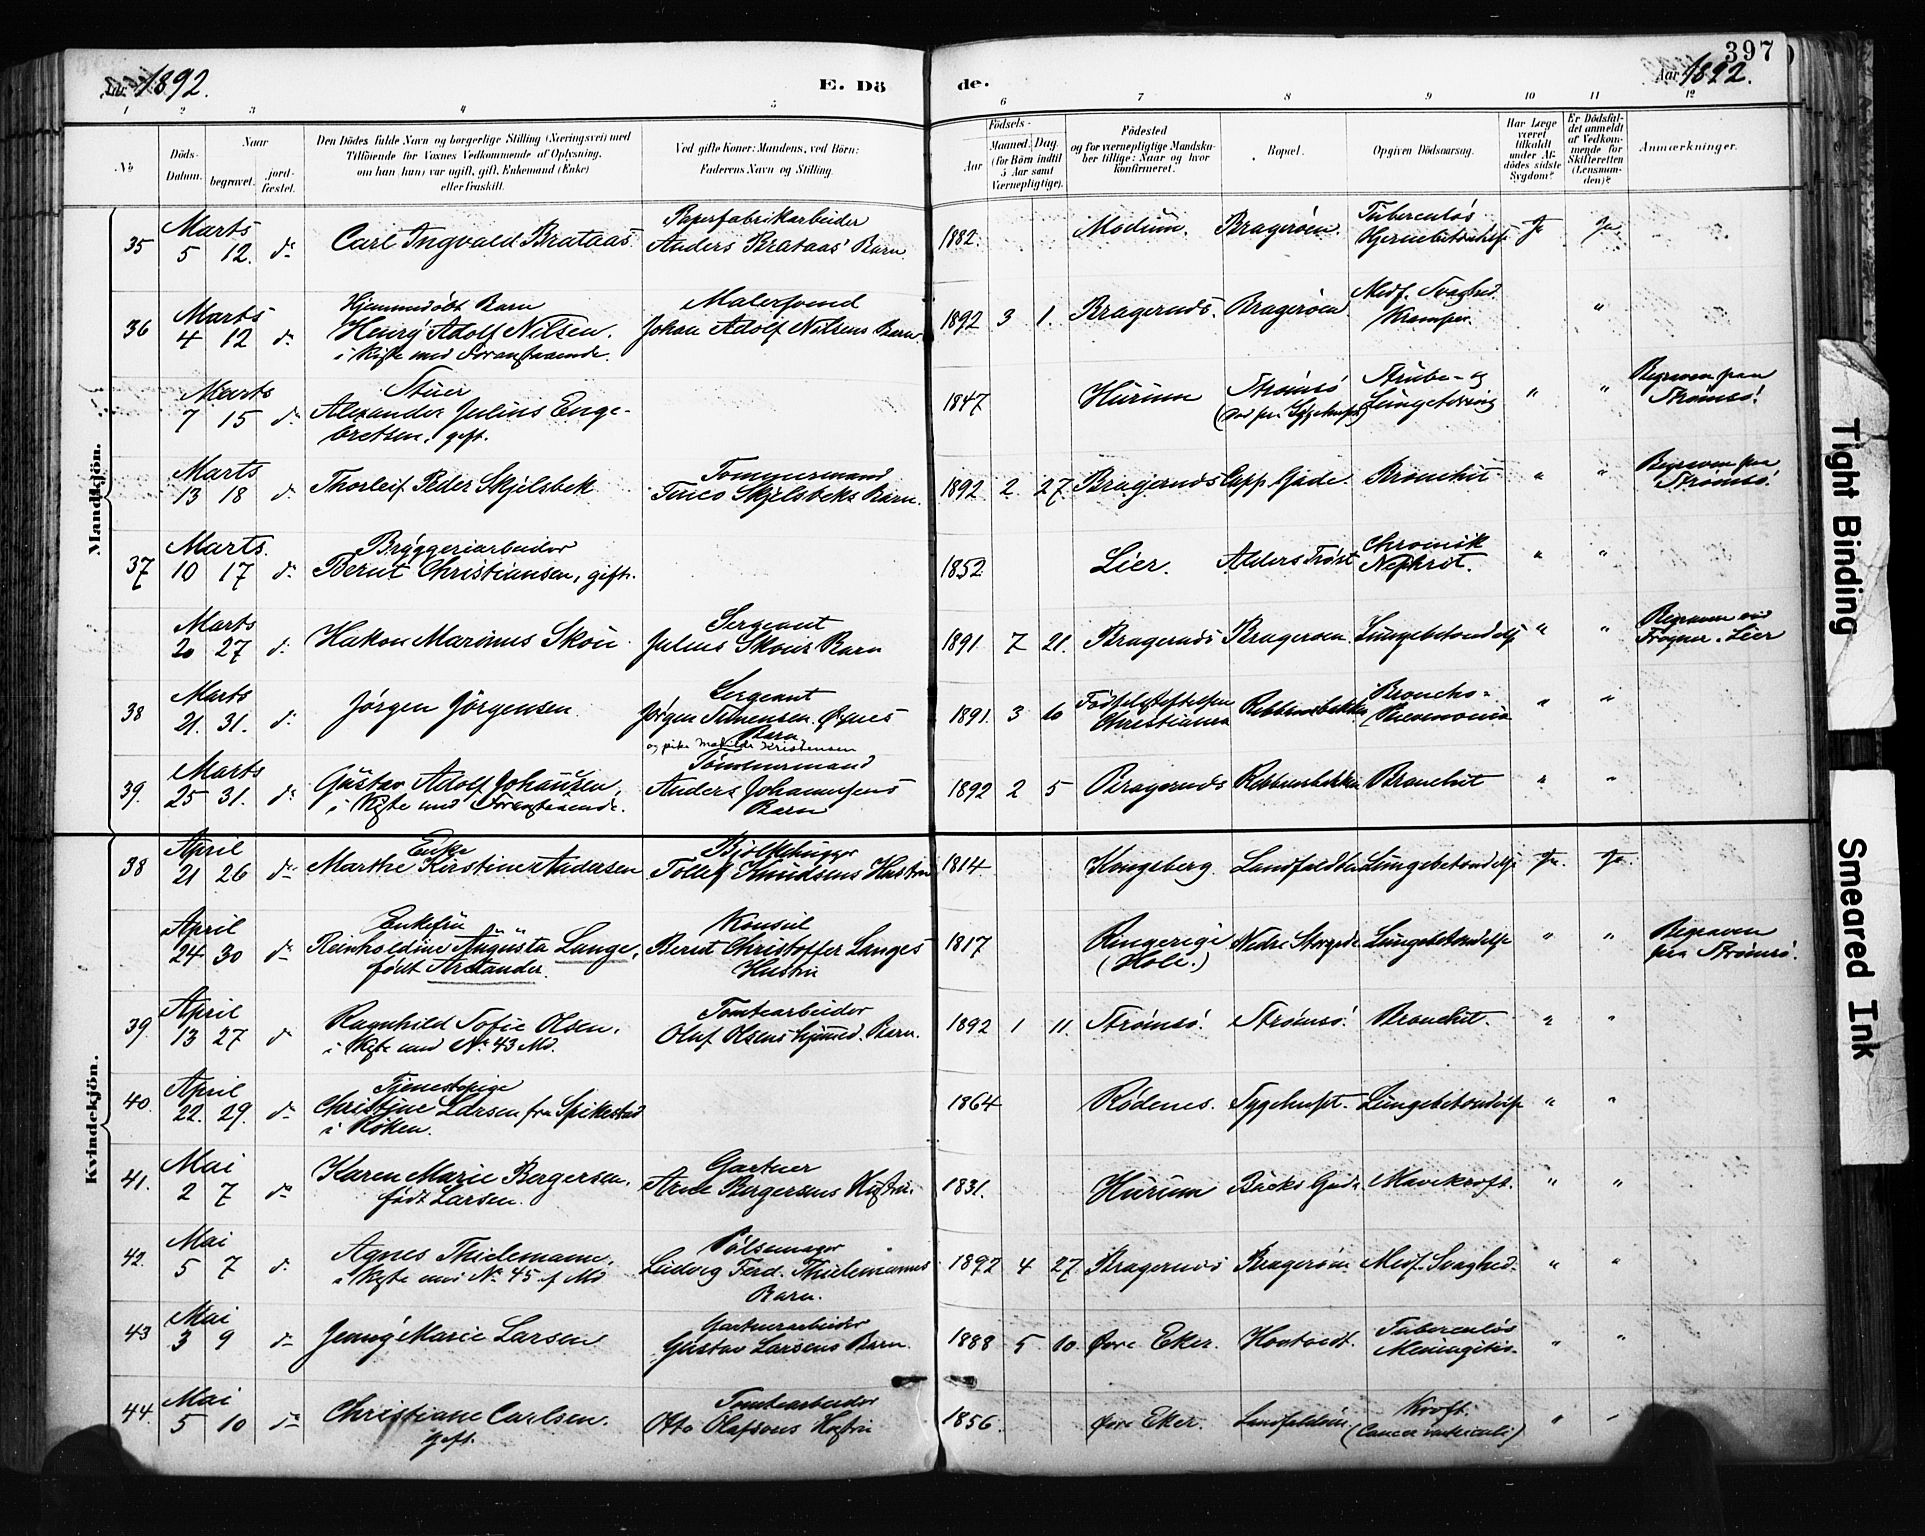 397
Aar 1892.
E. Dö
de.
Aar 1892.
1 2 3 4 5 6 7 8 9 10 11 12
No
Döds-Datum.
Naar
begravet.
jord-fæstet.
Den Dödes fulde Navn og borgerlige Stilling (Næringsvei) med
Tilföiende for Voxnes Vedkommende af Oplysning,
om han (hun) var ugift, gift, Enkemand (Enke)
eller fraskilt.
Ved gifte Koner: Mandens, ved Börn:
Faderens Navn og Stilling.
Födsels-
Aar
Maaned. Dag.
(for Börn indtil
5 Aar samt
Værnepligtige).
Födested
og for værnepligtige Mandska-
ber tillige: Naar og hvor
konfirmeret.
Bopæl.
Opgiven Dödsaarsag.
Har Læge
været
tilkaldt
under Af-
dödes sidste
Sygdom?
Er Dödsfal-
det anmeldt
af Vedkom-
mende for
Skifteretten
(Lensman-
den)?
Anmærkninger.
Mandkjön.
Marts Paperfabrikarbeider Tuberculös
35 5 12. do Carl Ingvald Brataas. Anders Brataas' Barn. 1882. Modum. Bragerøen. Hjernebetændelse Ja Ja
Marts Hjemmedøbt Barn Malersvend Medf. Svaghed.
36 4 12 do Henry Adolf Nilsen. Johan Adolf Nilsens Barn. 1892 3 1. Bragernæs. Bragerøen Kramper. "
i Kiste med Foranstaaende.
Marts Stuer Strube- og Begraven paa
7 15 do Alexander Julius Enge- 1847 Hurum Strømsø Lungetæring " " Strømsø.
bretsen, gift. (død paa Sygehuset)
Marts Tømmermand Begraven paa
13 18 do Thorleif Peder Skjelsbek Skjelsbeks Barn. 1892 2 27. Bragernæs Capp. Gade. Bronchit " " Strømsø.
Marts. Bryggeriarbeider Chronisk
37 10 17 do Bernt Christiansen, gift. 1852 Lier. Alders Trøst Nephrit. " "
Marts Sergeant Begraven ved
20 27 do Hakon Marinus Skou Julius Skous Barn 1891 7 21. Bragernæs Bragerøen. Lungebetændelse " " Frogner i Lier
Marts Sergeant Fødselsstiftelsen Broncho-
38 21. 31. do Jørgen Jörgensen Jørgen Simensen Øxnes 1891. 3 10 Christiania Rebbansbakken Pneumonia " "
Barn
og pike Matilde Kristensen
Marts Tömmermand
39. 25 31. do Gustav Adolf Johansen, Anders Johannesens 1892 2 5 Bragernæs Rebbansbakken Bronchit " "
i Kiste med Foranstaaende. Barn
Kvindekjön.
April Enke Bjelkehugger
38 21 26 do Marthe Kirstine Andersen Tollef Knudsens Hustru 1814 Kongsberg. Landfaldøen Lungebetændelse Ja. Ja.
April Enkefru Konsul Begraven
24 30 do Reinholdine Augusta Lange, Bernt Christoffer Langes 1817 Ringerige Nedre Storgade Lungebetændelse " " paa Strømsø.
født Arctander. Hustru (Hole.)
April Tomtearbeider
39. 13 27 do Ragnhild Sofie Olsen, Oluf Olsens Hjmed. Barn. 1892 1 11. Strømsø. Strømsø. Bronchit. " "
i Kiste med No 43 Md.
April Tjenestepige
40. 22. 29. do Christine Larsen fra Spikestad 1864 Rødenes. Sygehuset. Lungebetændelse " "
i Røken.
Mai Gartner
41. 2 7 do Karen Marie Bergersen, Arne Bergersens Hustru. 1831. Hurum Bücks Gade. Mavekræft. " "
født Larsen.
Mai Pølsemager
42. 5 7 do Agnes Thielemann. Ludvig Ferd. Thielemanns 1892 4 27. Bragernæs Bragerøen. Medf. Svaghed. " "
i Kiste med No 45 f Md Barn.
Mai Gartnerarbeider Tuberculøs
43 3 9 do Jenny Marie Larsen Gustav Larsens Barn. 1888 5 10. Øvre Eker. Hovtvedt. Meningitis. " "
Mai Tomtearbeider Kræft.
44. 5 10 do Christiane Carlsen. Otto Olafsens Hustru 1856. Øvre Eker. Landfaldøen (Cancer ventriculi) " "
gift.
Tight Binding
Smeared Ink